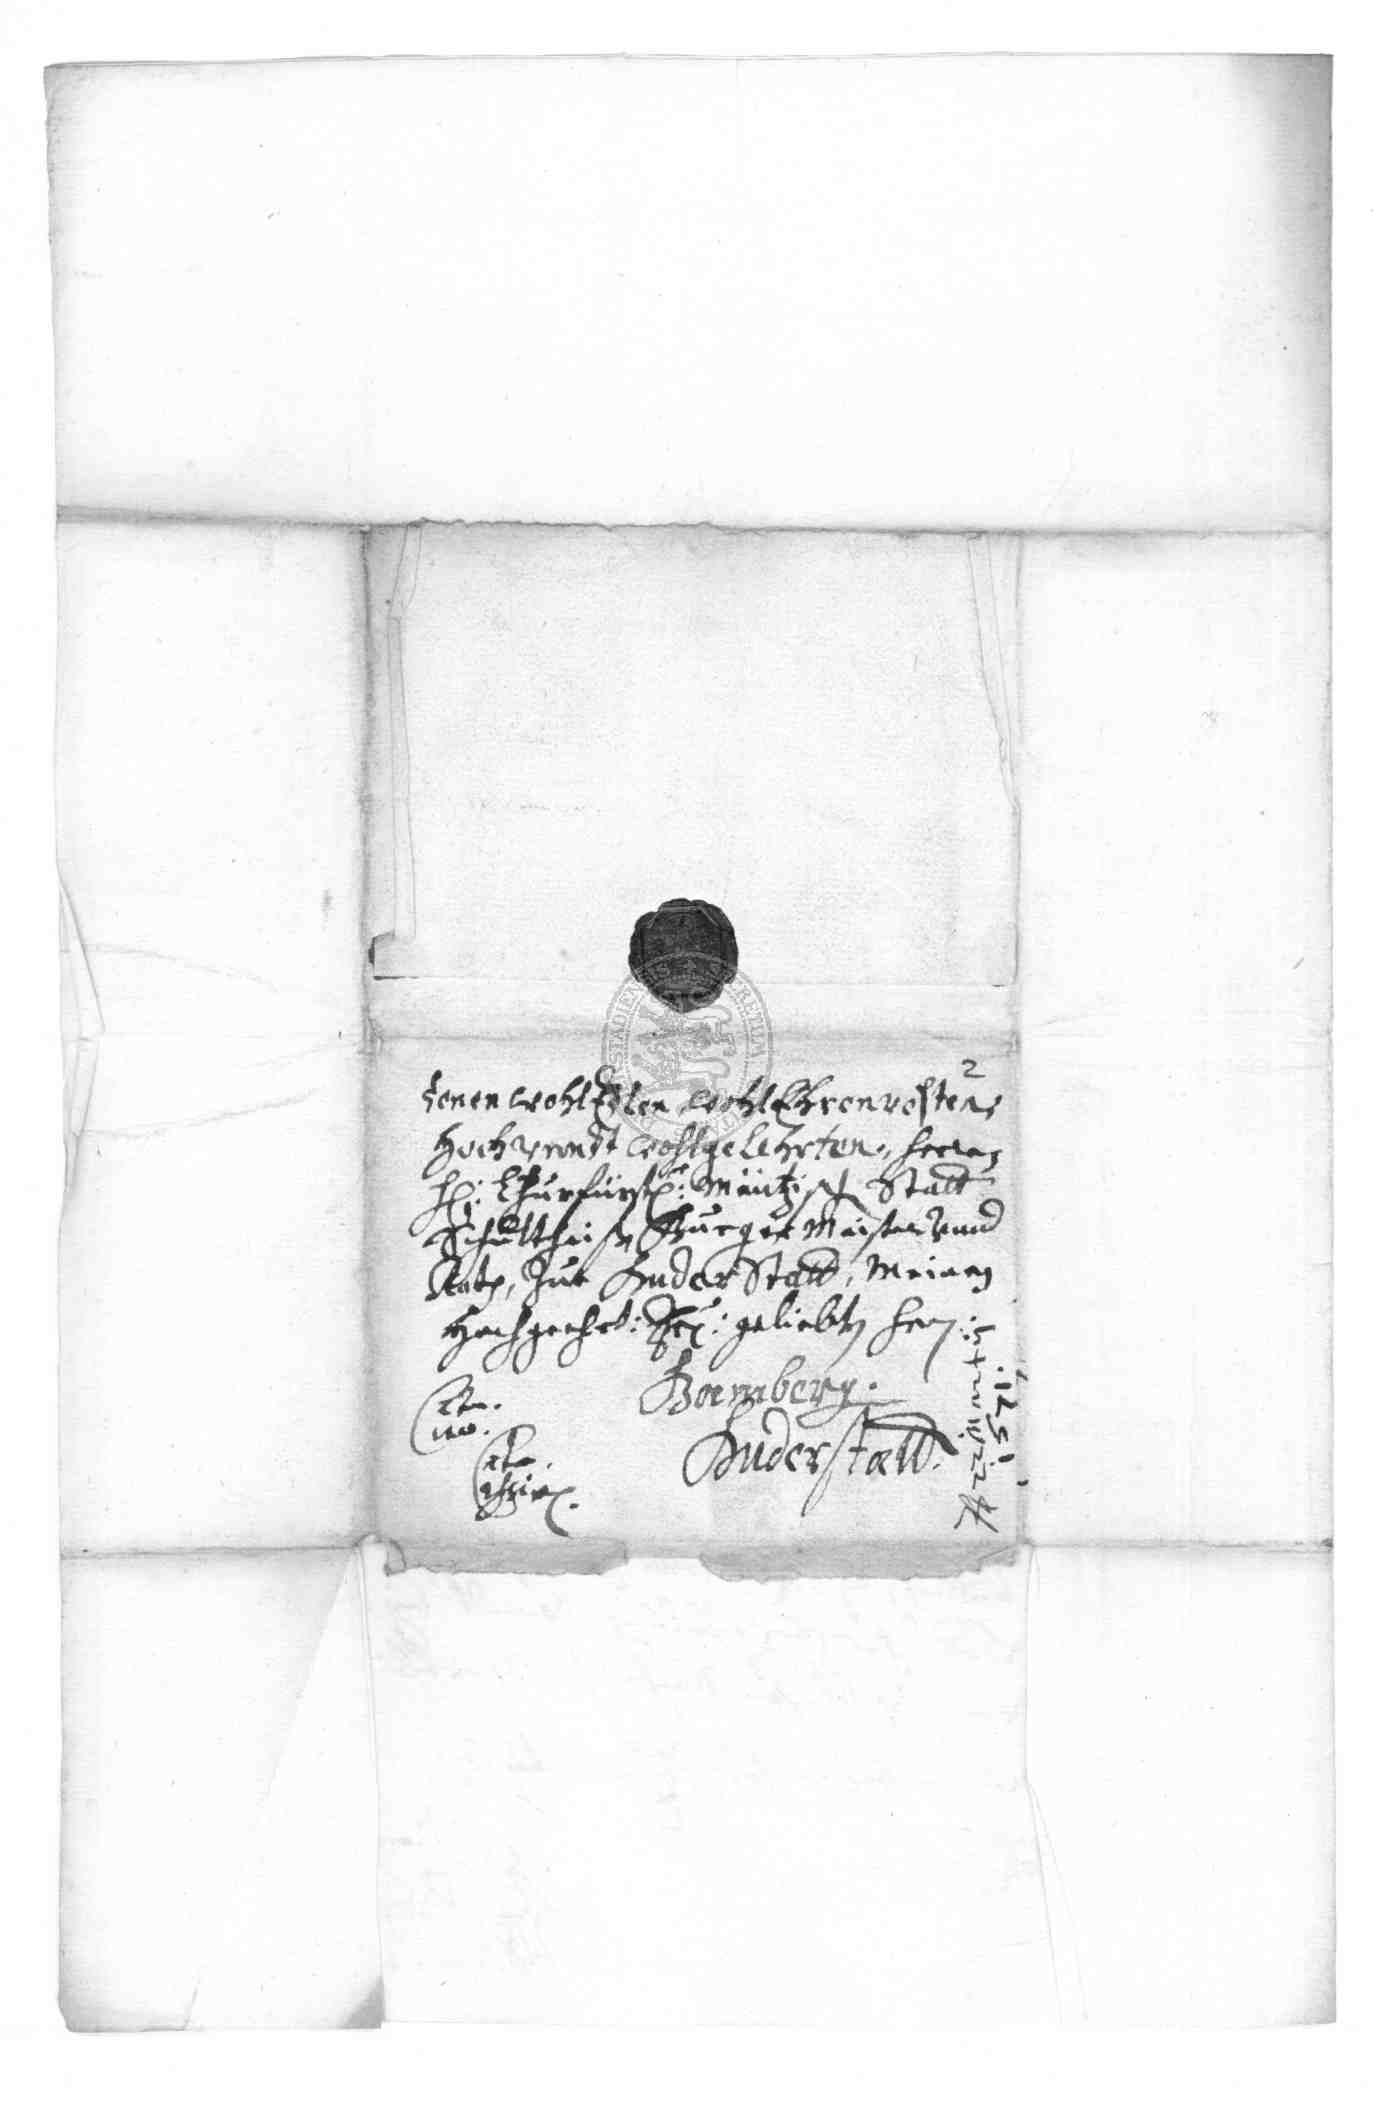 Denen WohlEdlen WohlEhrenvesten,
Hoch vnndt Wohlgelehrten, Herren
H: Churfürstl: Mäintzisch Statt
Schultheiß Burger Meister Vnnd
Rath, Zue DuderStatt, Meinen
Hochgeehrt: geliebten Herrn:
Bamberg.
Duderstatt.
2